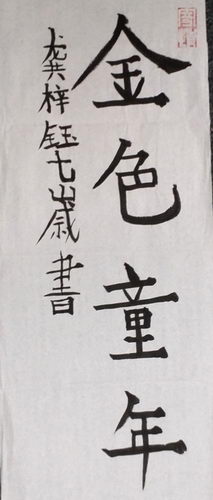 金色童年
龚梓鈺七歲書